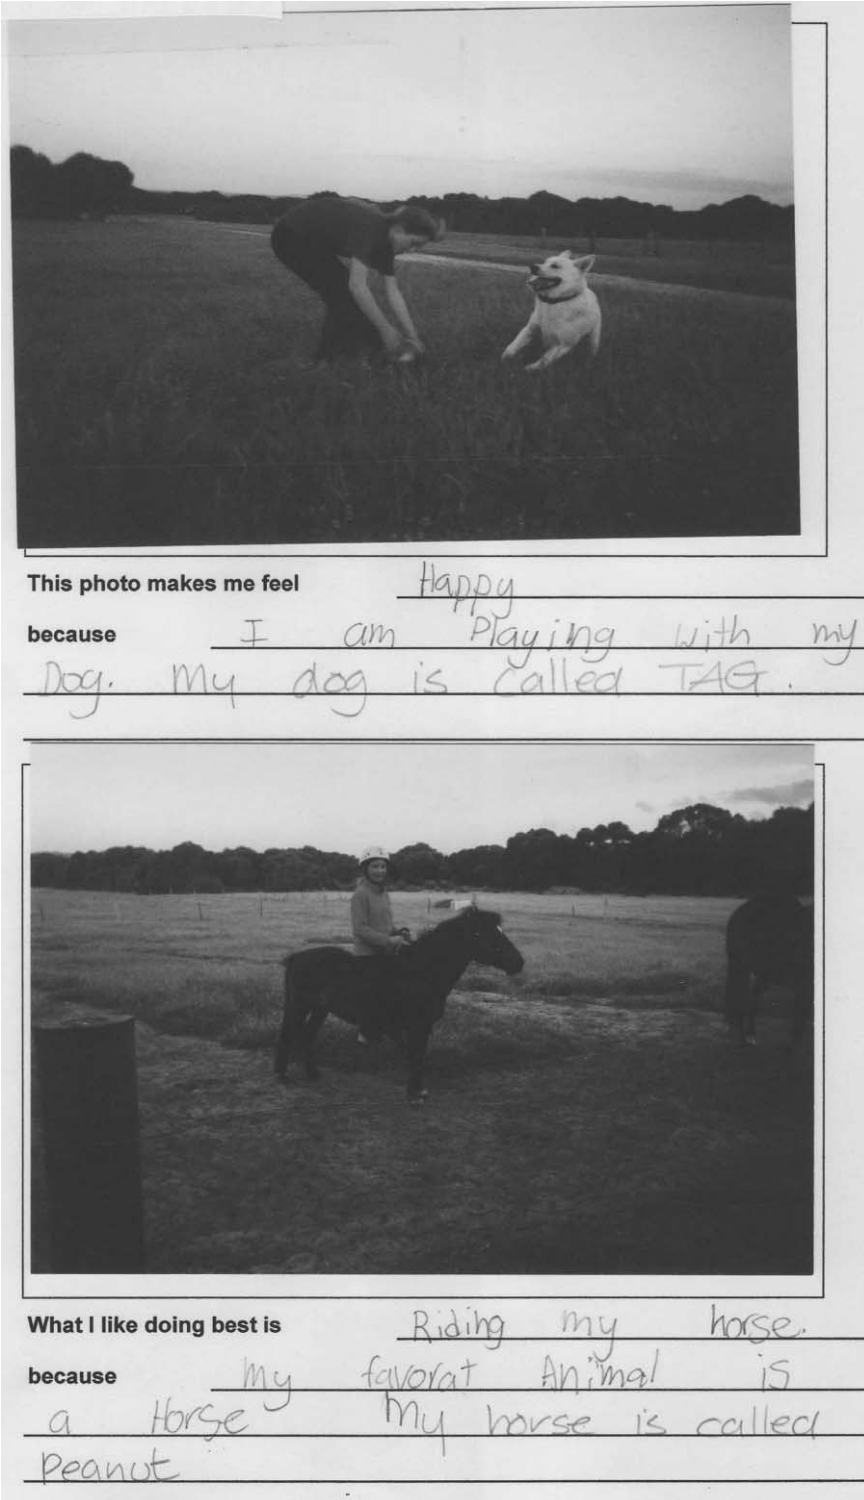 This photo makes me feel Happy
because I am Playing with my
Dog. My dog is called TAG.
What I like doing best is Riding my horse.
because my favorat Animal is
a Horse My horse is called
Peanut